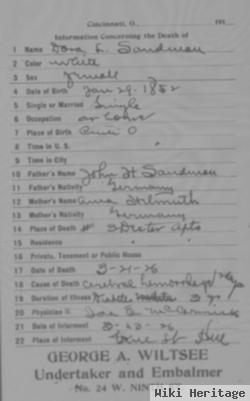 Cincinnati, O., 191
Information Concerning the Death of
1 Name Dora L. Sandman
2 Color White
3 Sex Female
4 Date of Birth Jan 29. 1852
5 Single or Married Single
6 Occupation at Home
7 Place of Birth Cinti O
8 Time in U. S.
9 Time in City
10 Father's Name John H Sandman
11 Father's Nativity Germany
12 Mother's Name Anna Helmuth
13 Mother's Nativity Germany
14 Place of Death Apts
15 Residence
16 Private, Tenement or Public House
17 Date of Death 3-21-26
18 Cause of Death Cerebral hemorrhage
19 Duration of Illness
20 Physician Jas E McCormick
21 Date of Interment 3-23-26
22 Place of Interment Hill
GEORGE A. WILTSEE
Undertaker and Embalmer
No. 24 W. NINTH ST
Wiki Heritage